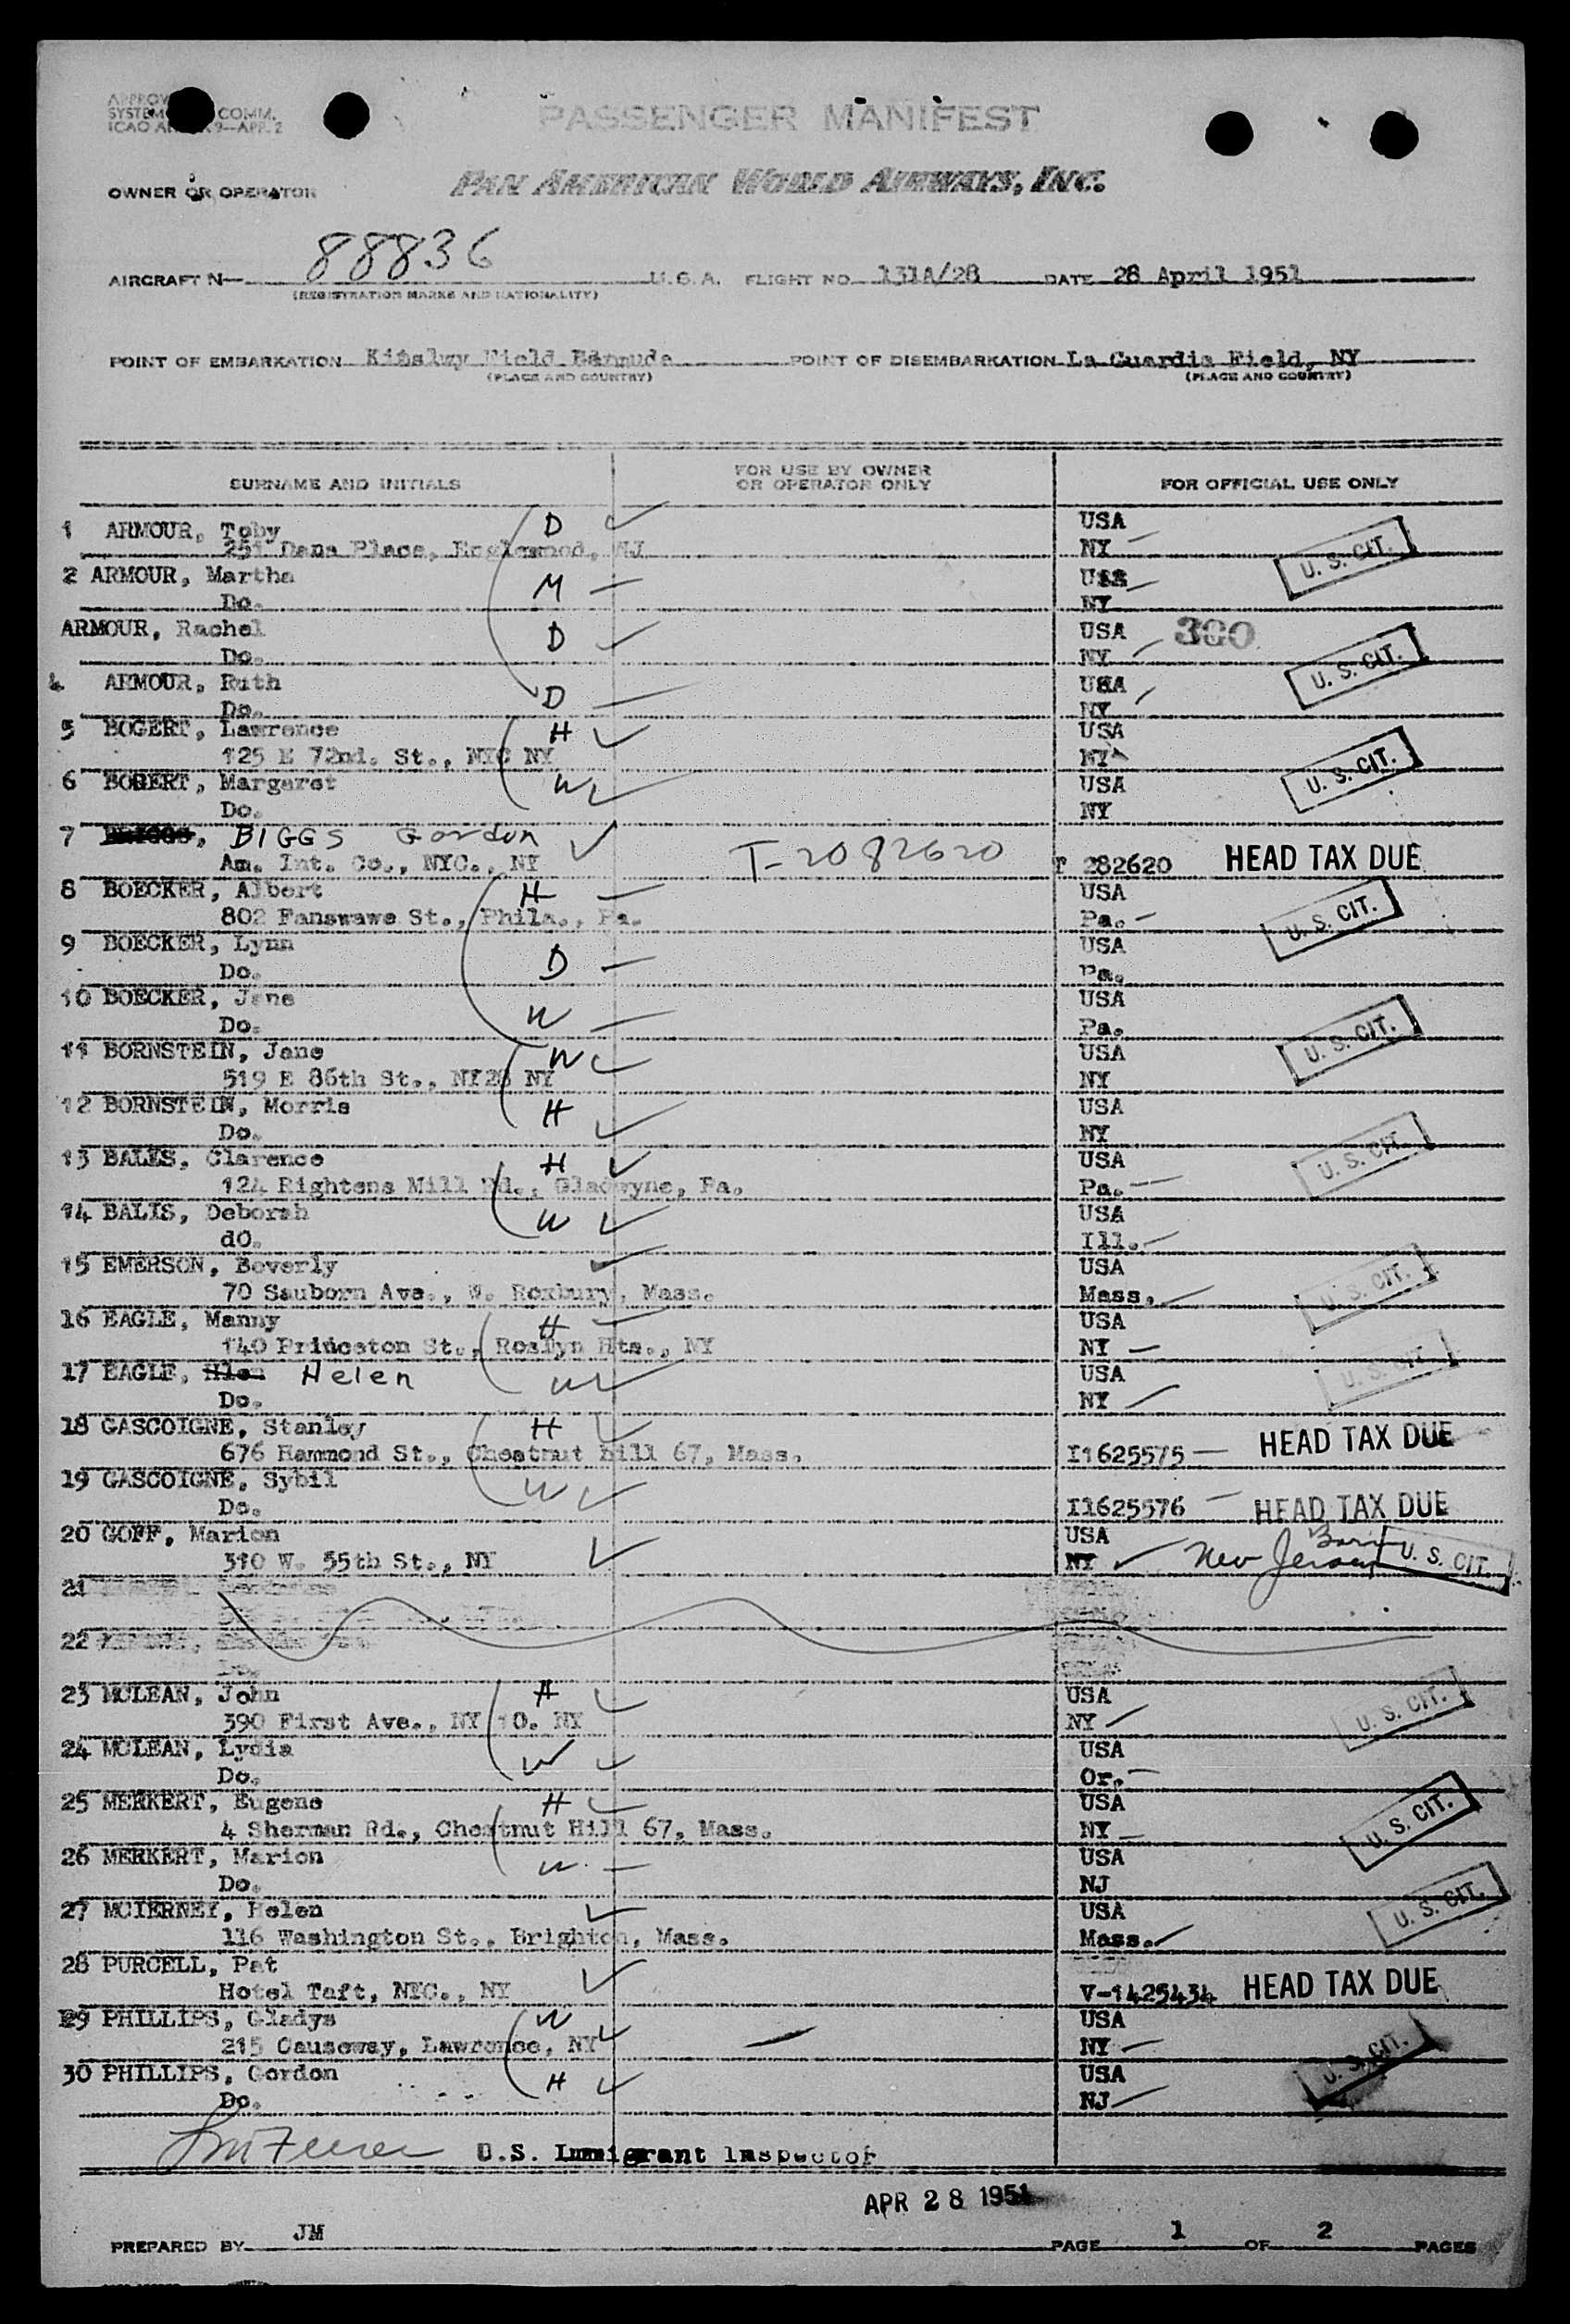 PASSENGER MANIFEST
COMM.
9—APP. 2
OWNER OR OPERATOR PAN AMERICAN WORLD AIRWAYS, INC.
AIRCRAFT N— 88836 U.S.A. FLIGHT NO. 131A/28 DATE 28 April 1951
(REGISTRATION MARKS AND NATIONALITY)
POINT OF EMBARKATION Field POINT OF DISEMBARKATION La Guardia Field, NY
(PLACE AND COUNTRY) (PLACE AND COUNTRY)
SURNAME AND INITIALS FOR USE BY OWNER OR OPERATOR ONLY FOR OFFICIAL USE ONLY
1 ARMOUR, Toby D USA
251 Dana Place, NJ NY U. S. CIT.
2 ARMOUR, Martha M
Do. NY
ARMOUR, Rachel D USA 300
Do. NY U. S. CIT.
4 ARMOUR, Ruth D USA
Do. NY
5 BOGERT, Lawrence H USA
125 E 72nd. St., NYC NY NY U. S. CIT.
6 BOGERT, Margaret W USA
Do. NY
7 BIGGS Gordon
Am. Int. Co., NYC., NY T-2082620 T 282620 HEAD TAX DUE
8 BOECKER, Albert H USA
802 Fanswawe St., Phila., Pa. Pa. U. S. CIT.
9 BOECKER, Lynn D USA
Do. Pa.
10 BOECKER, Jane W USA
Do. Pa. U. S. CIT.
11 BORNSTEIN, Jane W USA
519 E 86th St., NY28 NY NY
12 BORNSTEIN, Morris H USA
Do. NY
13 BALES, Clarence H USA U. S. CIT.
124 Rightens Mill Rd., Gladwyne, Pa. Pa.
14 BALIS, Deborah W USA
dO. Ill.
15 EMERSON, Beverly USA
70 Sauborn Ave., W. Roxbury, Mass. Mass. U. S. CIT.
16 EAGLE, Manny H USA
140 Princeton St., Roslyn Hts., NY NY
17 EAGLE, Helen W USA U. S. CIT.
Do. NY
18 GASCOIGNE, Stanley H
676 Hammond St., Chestnut hill 67, Mass. I1625575 HEAD TAX DUE
19 GASCOIGNE, Sybil W
Do. I1625576 HEAD TAX DUE
20 GOFF, Marion USA Born
310 W. 55th St., NY NY New Jersey U. S. CIT.
21
22
23 MCLEAN, John H USA
390 First Ave., NY 10. NY NY U. S. CIT.
24 MCLEAN, Lydia W USA
Do. Or.
25 MERKERT, Eugene H USA
4 Sherman Rd., Chestnut Hill 67, Mass. NY U. S. CIT.
26 MERKERT, Marion W USA
Do. NJ
27 MCIERNEY, Helen USA U. S. CIT.
116 Washington St., Brighton, Mass. Mass.
28 PURCELL, Pat
Hotel Taft, NYC., NY V-1425434 HEAD TAX DUE
29 PHILLIPS, Gladys W USA
215 Causeway, Lawrence, NY NY U. S. CIT.
30 PHILLIPS, Gordon H USA
Do. NJ
U.S. Immigrant Inspector
APR 28 1951
PREPARED BY JM PAGE 1 OF 2 PAGES